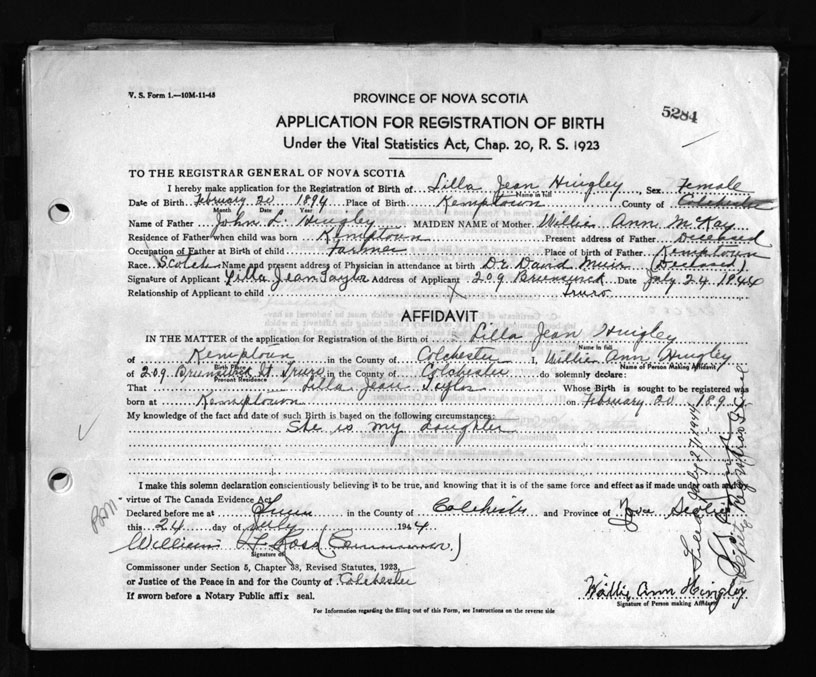 V. S. Form 1.—10M-11-43
PROVINCE OF NOVA SCOTIA
5284
APPLICATION FOR REGISTRATION OF BIRTH
Under the Vital Statistics Act, Chap. 20, R. S. 1923
TO THE REGISTRAR GENERAL OF NOVA SCOTIA
I hereby make application for the Registration of Birth of Lilla Jean Hingley, Sex Female
Name in full
Date of Birth February 20 1894 Place of Birth Kemptown County of Colchester
Month Date Year
Name of Father John L. Hingley MAIDEN NAME of Mother Willie Ann McKay
Residence of Father when child was born Kemptown Present address of Father Deceased
Occupation of Father at Birth of child Farmer Place of birth of Father Kemptown
Race Scotch Name and present address of Physician in attendance at birth Dr. David Muir (Deceased)
Signature of Applicant Lilla Jean Taylor Address of Applicant 209 Brunswick Date July 24 1944
Relationship of Applicant to child X Truro
AFFIDAVIT
IN THE MATTER of the application for Registration of the Birth of Lilla Jean Hingley
Name in full
of Kemptown in the County of Colchester I, Willie Ann Hingley
Birth Place Name of Person Making Affidavit
of 209 Brunswick St Truro in the County of Colchester do solemnly declare:
Present Residence
That Lilla Jean Taylor Whose Birth is sought to be registered was
born at Kemptown on February 20 189
My knowledge of the fact and date of such Birth is based on the following circumstances:
She is my daughter
I make this solemn declaration conscientiously believing it to be true, and knowing that it is of the same force and effect as if made under oath and by
virtue of The Canada Evidence Act.
Declared before me at Truro in the County of Colchester and Province of Nova Scotia
this 24 day of July 1944
William (Commissioner)
Signature of
Commissioner under Section 5, Chapter 38, Revised Statutes, 1923,
or Justice of the Peace in and for the County of Colchester
If sworn before a Notary Public affix seal.
Willie Ann Hingley
Signature of Person making Affidavit
For Information regarding the filling out of this Form, see Instructions on the reverse side
July 27/1944
Deputy Registrar